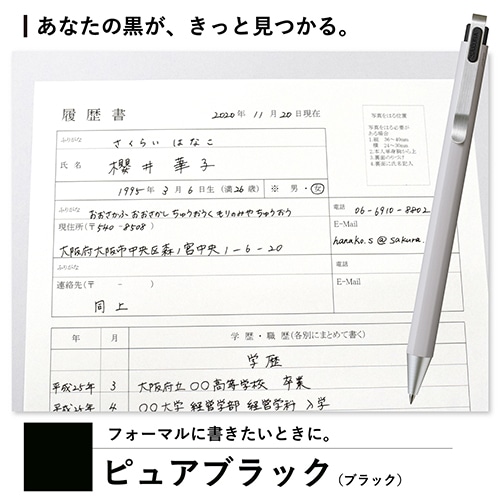 あなたの黒が、きっと見つかる。
履歴書 2020年 11月 20日現在
ふりがな さくらい はなこ
氏名 櫻井 華子
1995年 3月 6日生(満26歳) ※ 男・女
ふりがな おおさかふ おおさかし ちゅうおうく もりのみや ちゅうおう
現住所(〒540-8508)
大阪府大阪市中央区森ノ宮中央1-6-20
電話 06-6910-8802
E-Mail
hanako.s@sakura.
ふりがな
連絡先(〒 - )
同上
電話
E-Mail
写真をはる位置
写真をはる必要が
ある場合
1.縦 36~40mm
横 24~30mm
2.本人単身胸から上
3.裏面のりづけ
4.裏面に氏名記入
年 月 学歴・職歴(各別にまとめて書く)
学歴
平成25年 3 大阪府立〇〇高等学校 卒業
4 〇〇大学 経営学部 経営学科 入学
フォーマルに書きたいときに。
ピュアブラック(ブラック)